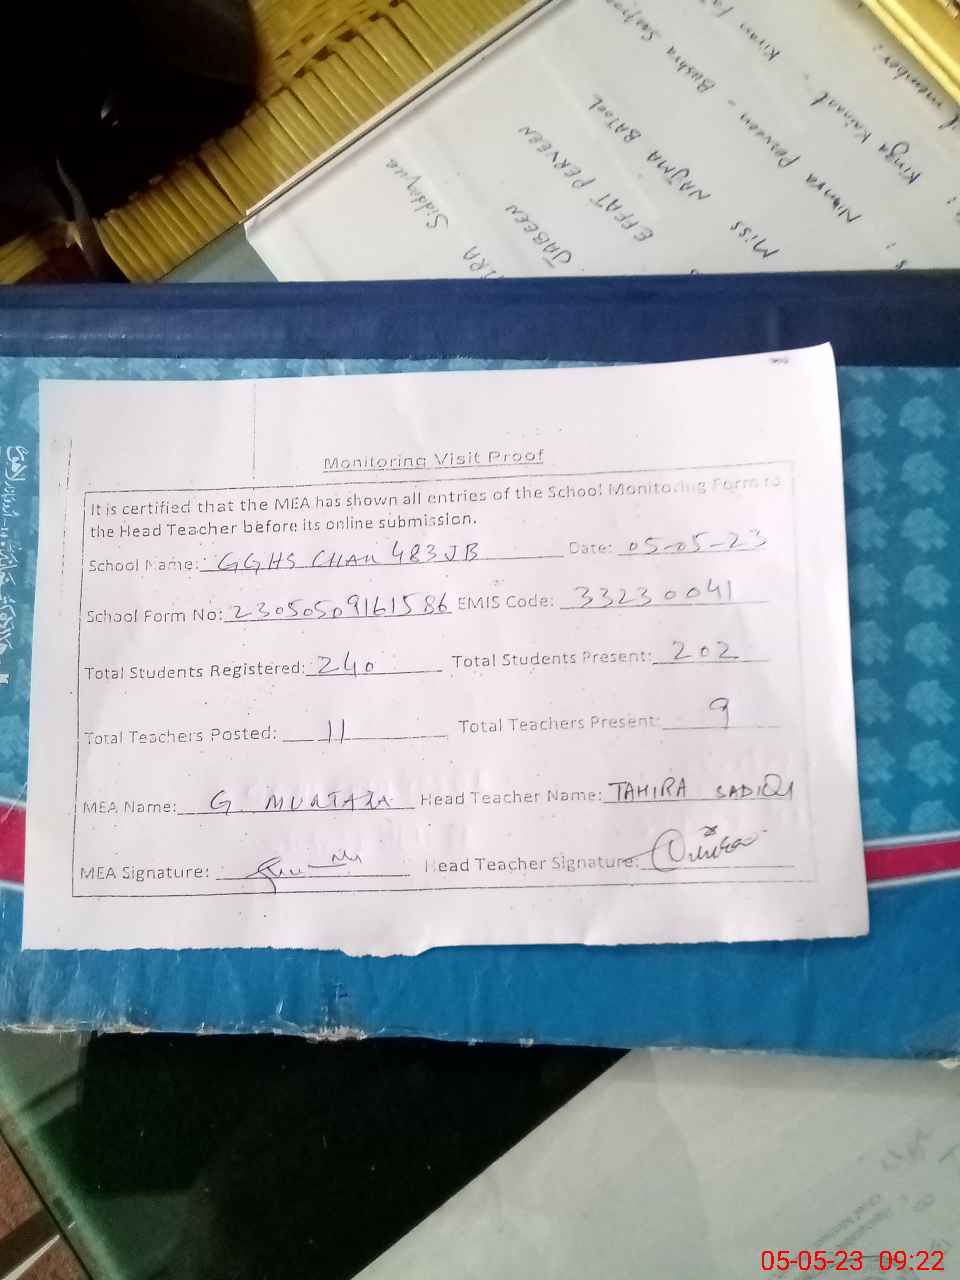 member:
Kinza Kainaat - Kiran
Nimra Perveen - Bushra
MISS NAJMA BATOOL
EFFAT PERVEEN
JABEEN
Siddiqua
Monitoring Visit Proof
It is certified that the MEA has shown all entries of the School Monitoring Form to
the Head Teacher before its online submission.
School Name: GGHS CHAK 483 JB Date: 05-05-23
School Form No: 23050509161586 EMIS Code: 33230041
Total Students Registered: 240 Total Students Present: 202
Total Teachers Posted: 11 Total Teachers Present: 9
MEA Name: G. MURTAZA Head Teacher Name: TAHIRA SADIQA
MEA Signature: Head Teacher Signature:
05-05-23 09:22